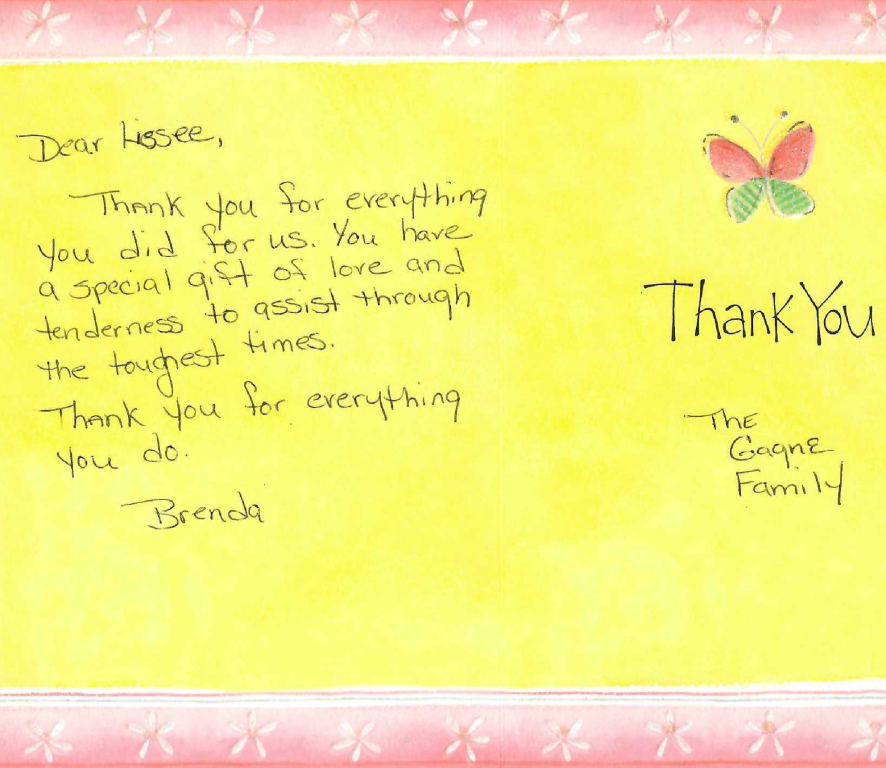 Dear Lissee,
Thank you for everything
you did for us. You have
a special gift of love and
tenderness to assist through
the toughest times.
Thank you for everything
you do.
Brenda
Thank You
The
Gagne
Family